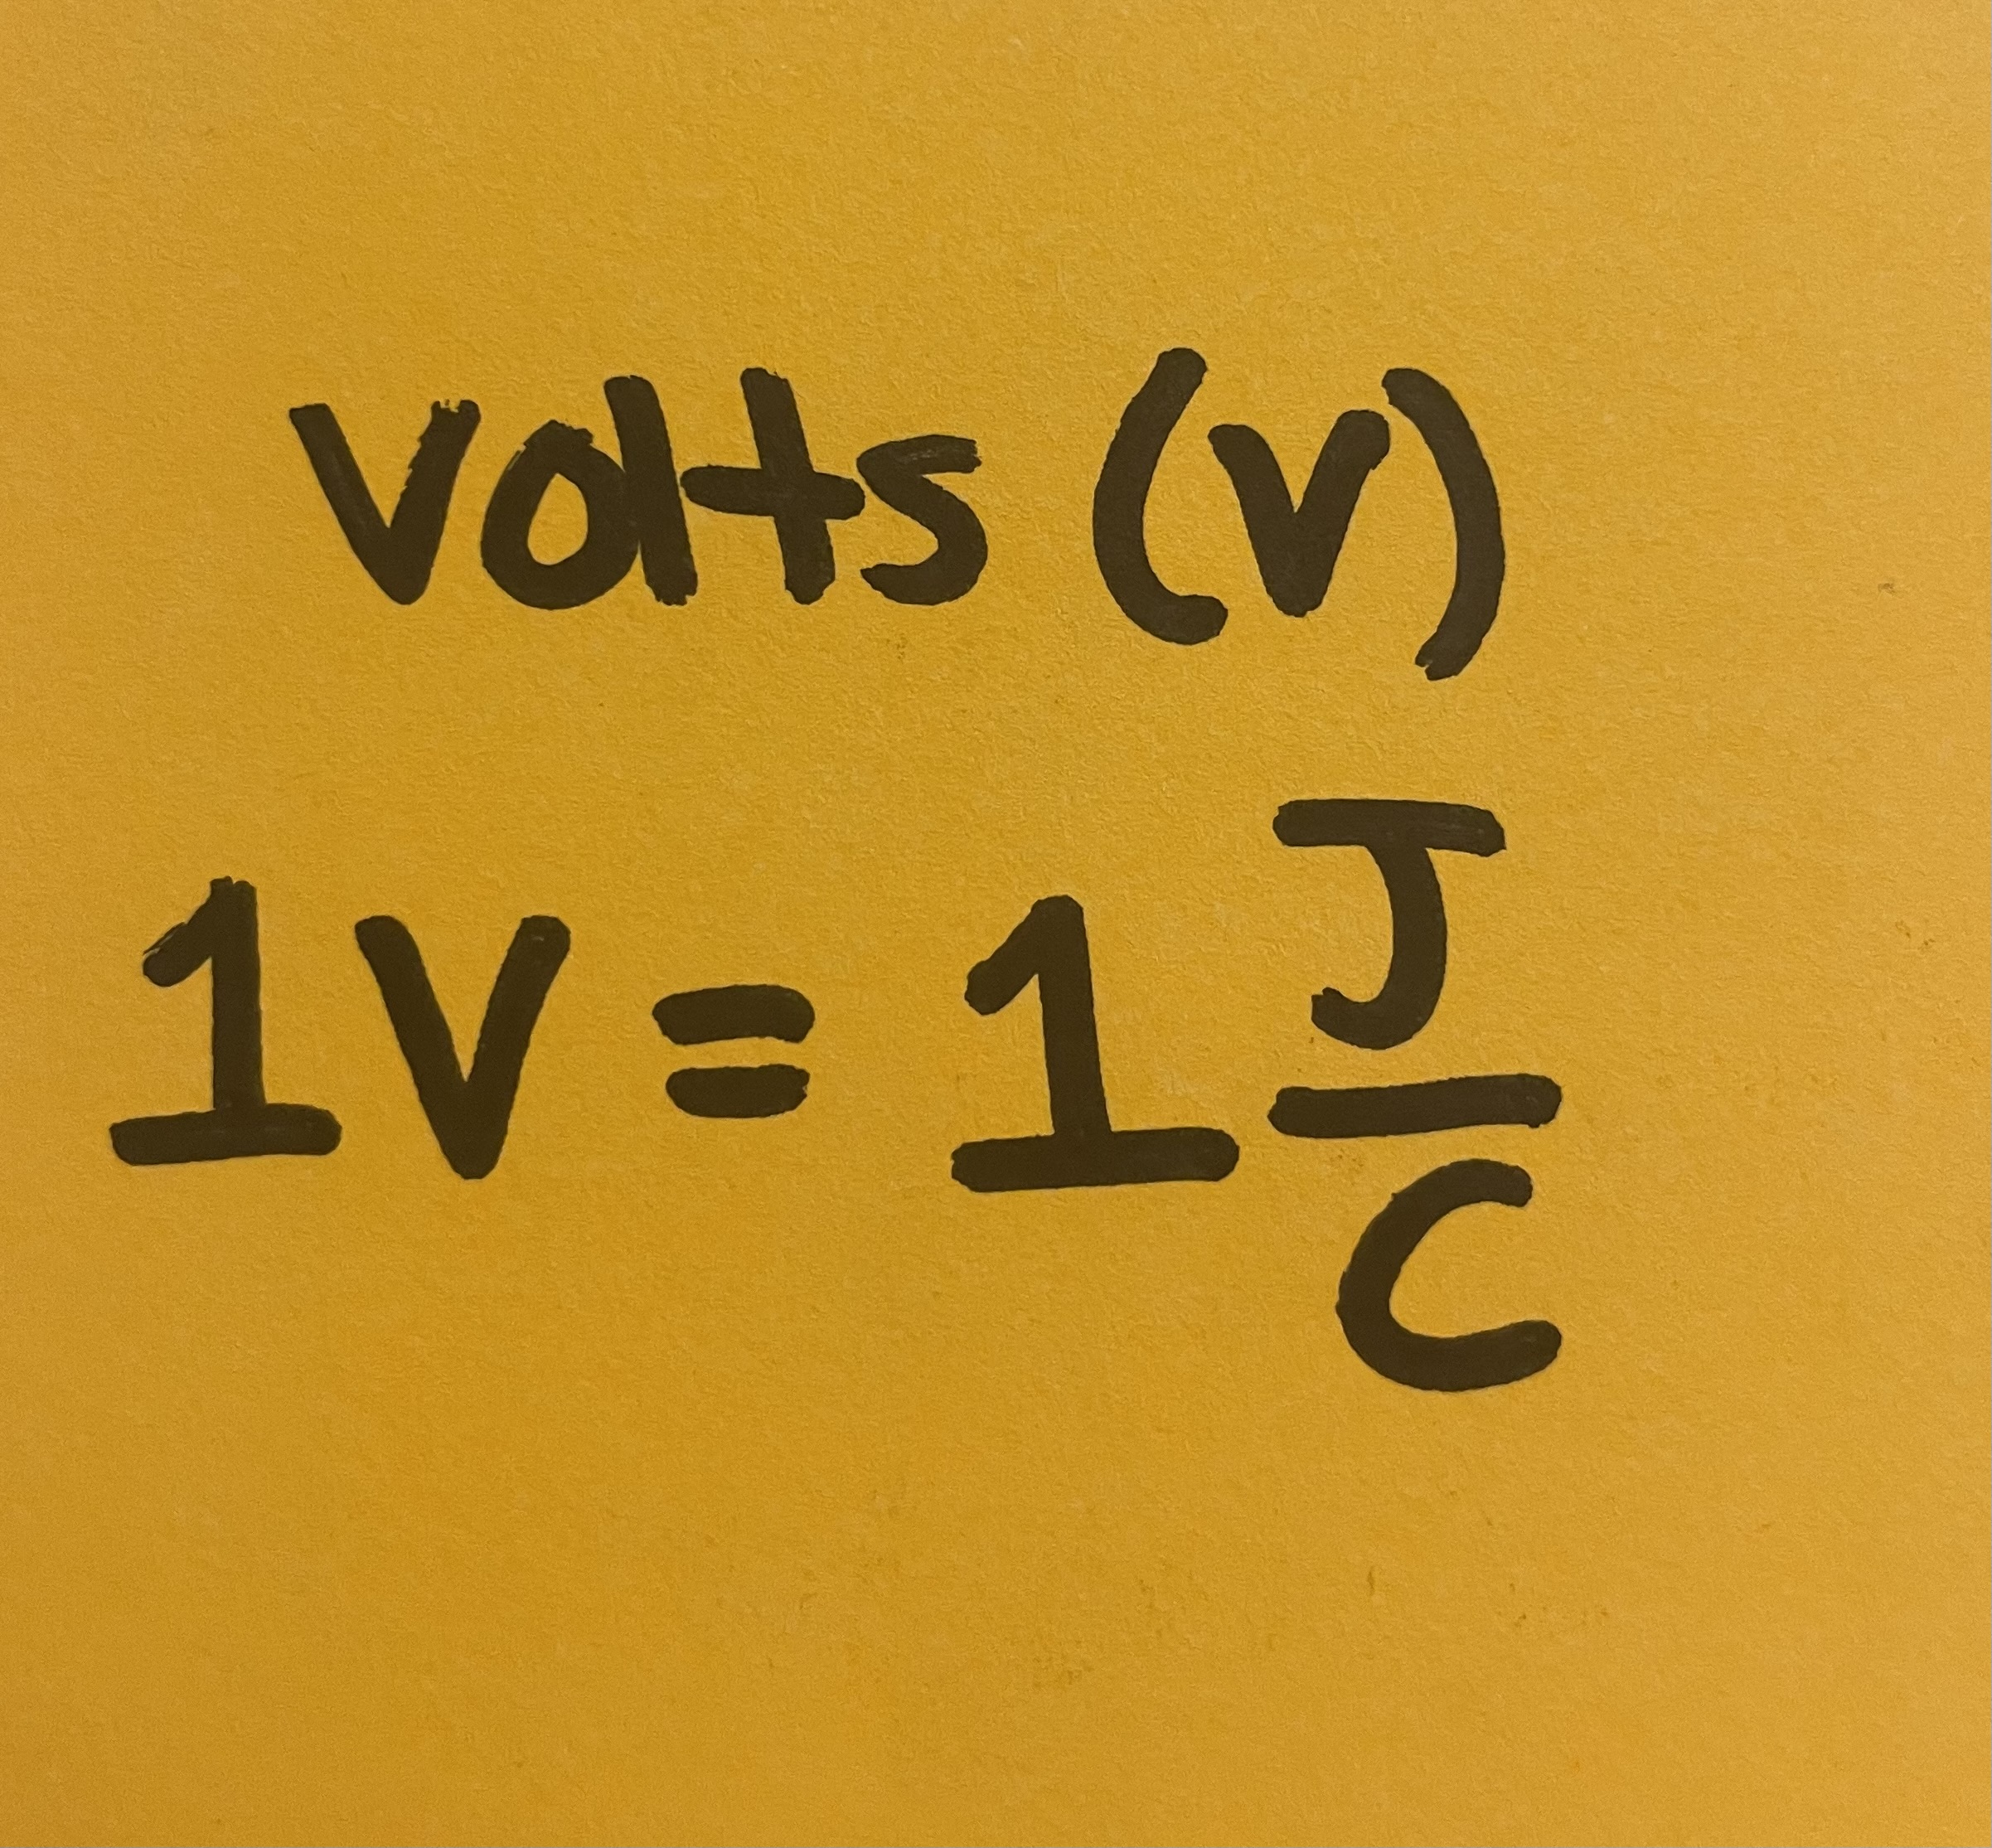 volts (V)
1V = 1 J/C